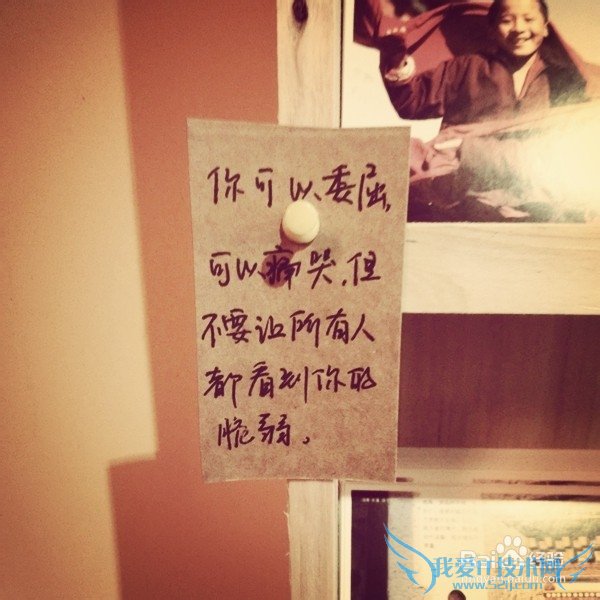 你可以委屈,
可以痛哭,但
不要让所有人
都看到你的
脆弱。
Baidu经验
jingyan.baidu.com
我爱IT技术网
www.52ij.com